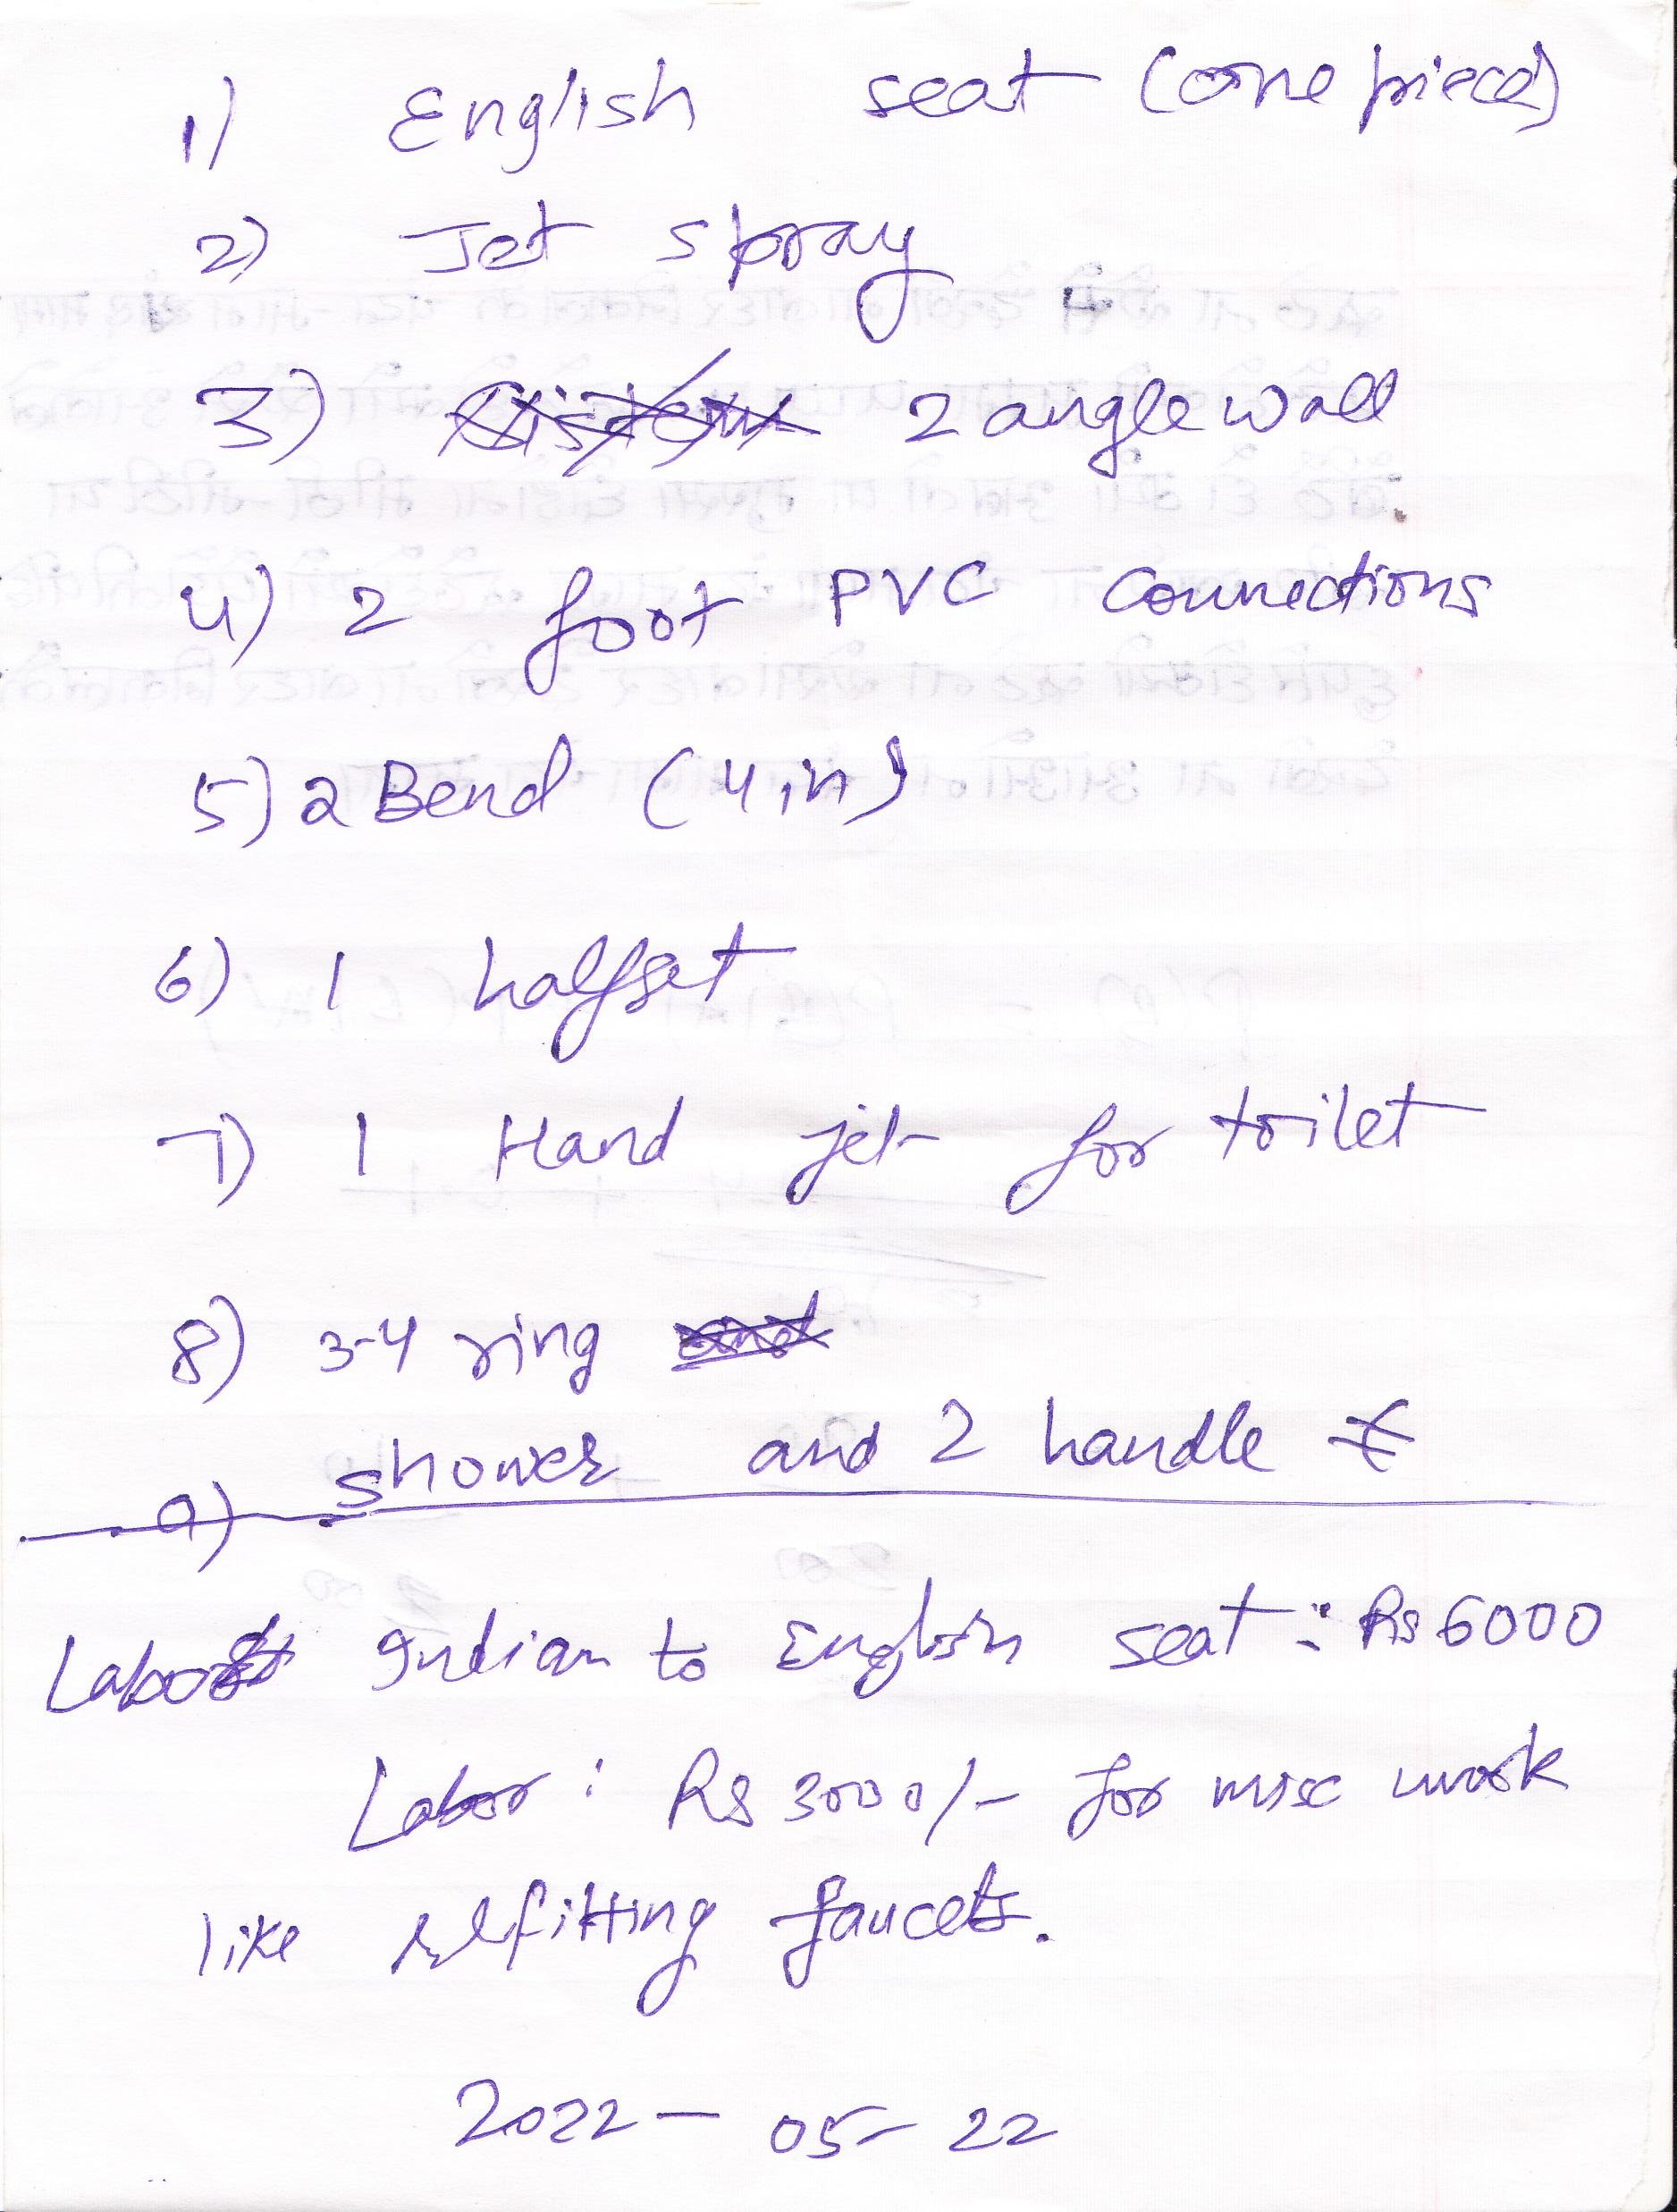 1) English seat (one piece)
2) Jet spray
3) 2 angle wall
4) 2 foot PVC Connections
5) 2 Bend (4 in)
6) 1 halfset
7) 1 Hand jet for toilet
8) 3-4 ring
9) shower and 2 handle
Labor Indian to English seat: Rs 6000
Labor: Rs 3000/- for misc work
like refitting faucets.
2022-05-22